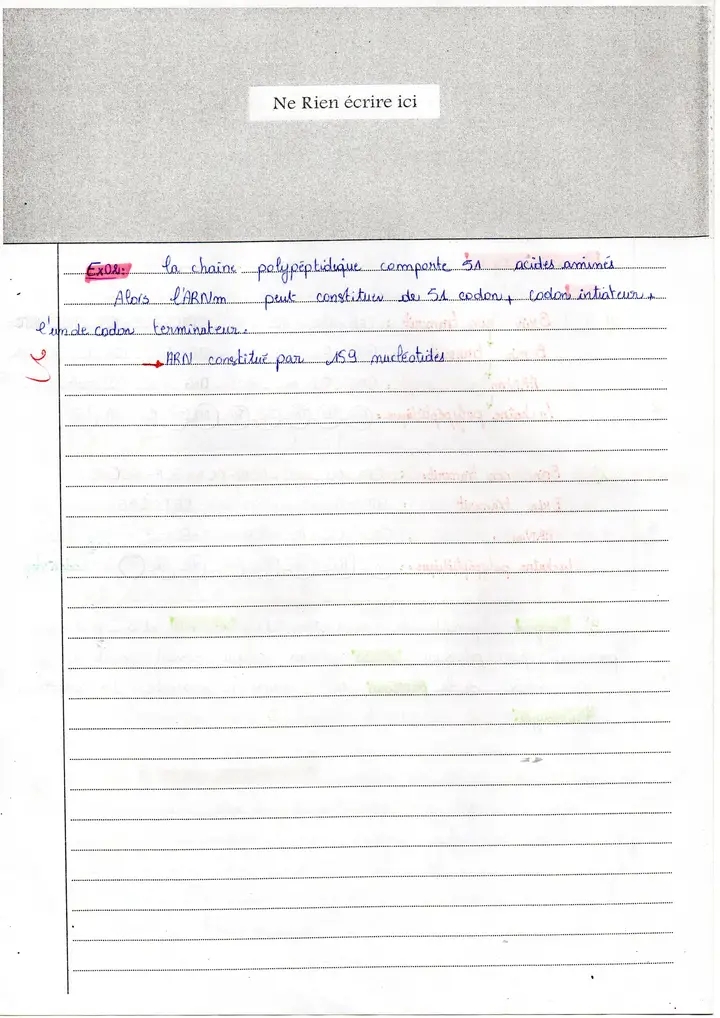 Ne Rien écrire ici
Ex02: la chaine polypéptidique comporte 51 acides aminés
Alors l'ARNm peut constituer de 51 codon + codon intiateur +
l'un de codon terminateur.
→ ARN constitué par 159 nucléotides